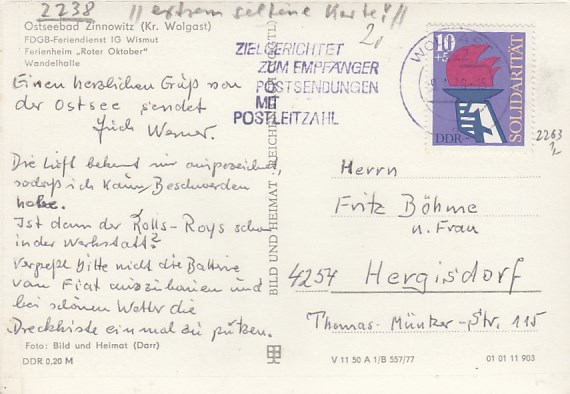 2238 || extrem seltene Karte! ||
Ostseebad Zinnowitz (Kr. Wolgast)
FDGB-Feriendienst IG Wismut
Ferienheim „Roter Oktober"
Wandelhalle
Einen herzlichen Gruß von
der Ostsee sendet
Erich Werner.
Die Luft bekommt mir ausgezeichnet,
sodaß ich kaum Beschwerden
habe.
Ist denn der Rolls-Roys schon
in der Werkstatt?
Vergeßt bitte nicht die Batterie
vom Fiat auszubauen und
bei schönem Wetter die
Dreckkiste einmal zu putzen.
Foto: Bild und Heimat (Darr)
DDR 0,20 M
BILD UND HEIMAT REICHENBACH (VOGTL)
ZIELGERICHTET
ZUM EMPFÄNGER
POSTSENDUNGEN
MIT
POSTLEITZAHL
10
+5
SOLIDARITÄT
DDR
2263
Herrn
Fritz Böhme
u. Frau
4254 Hergisdorf
Thomas-Müntzer-Str. 115
V 11 50 A 1/B 557/77
01 01 11 903